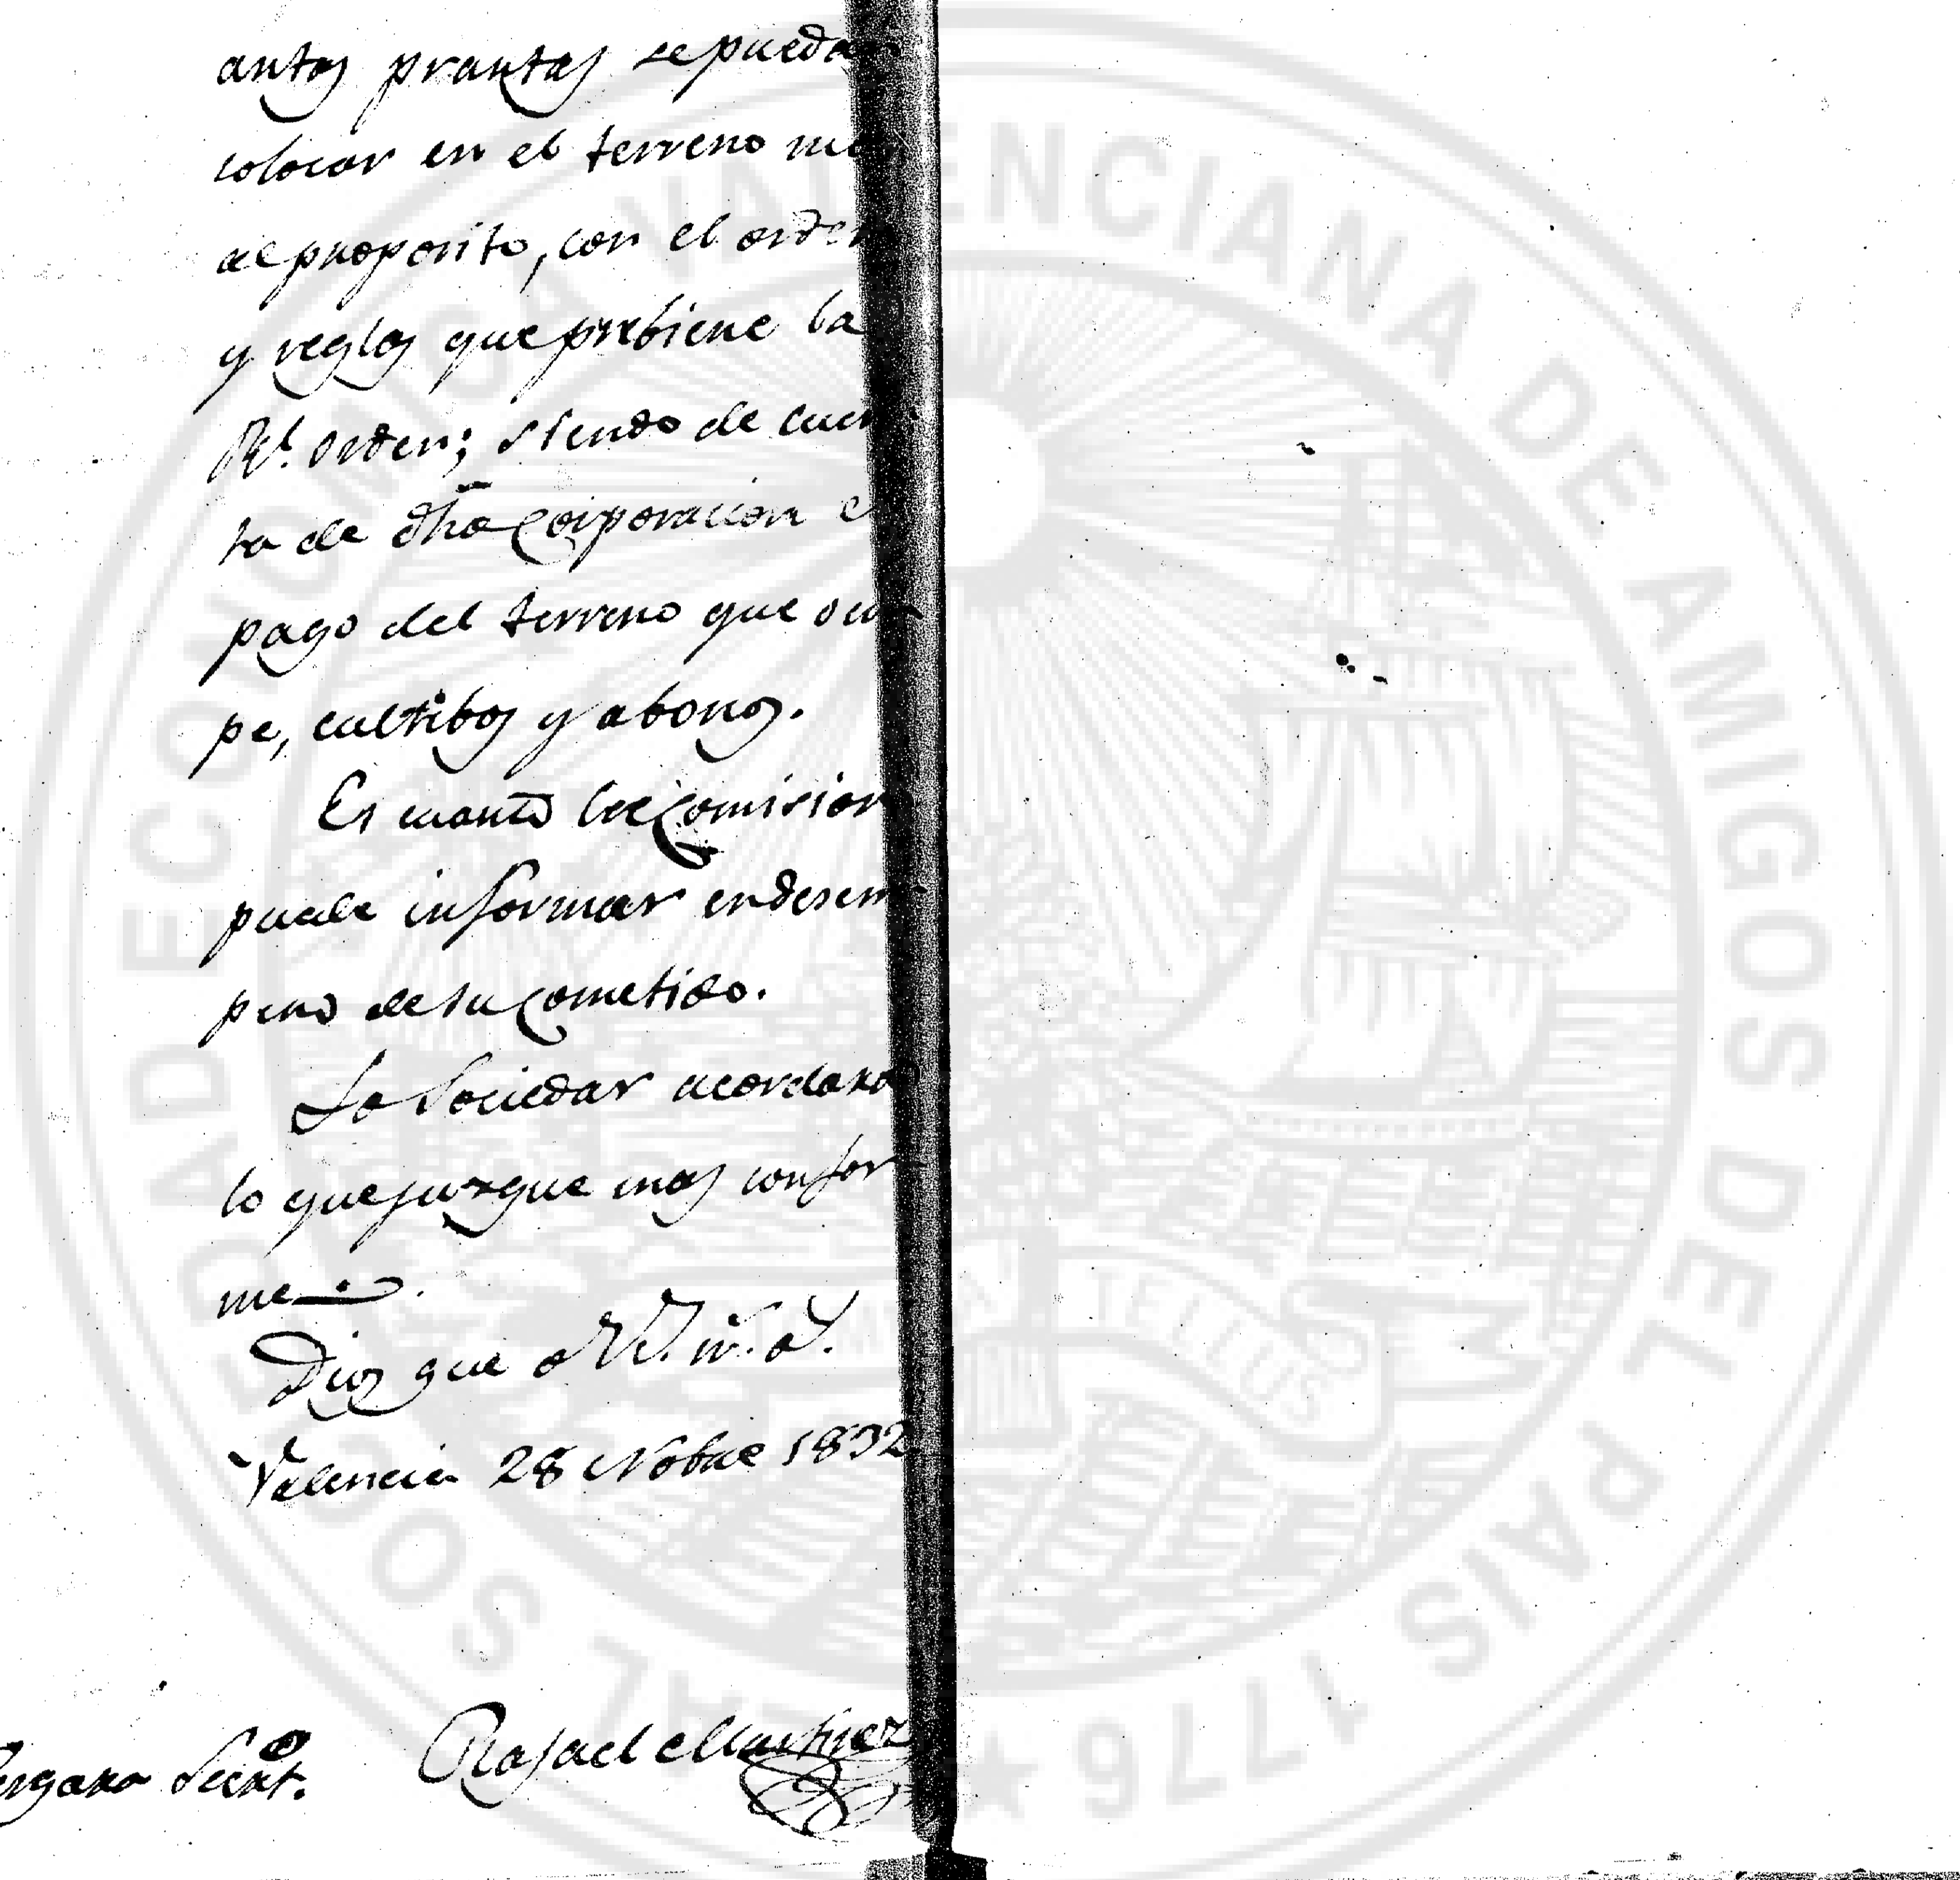 antas prantas se pueda
colocar en el terreno ma
al proposito, con el orden
y reglas que prebiene la
Rl. orden; siendo de cuen
ta de dha Corporacion e
pago del terreno que ocu
pe, cultibos y abonos.
Es cuanto la Comision
puede informar en desem
peño de su Cometido.
La Sociedad acordara
lo que juzgue mas confor
me
Dios gue a V. m. a.
Valencia 28 Nobre 1832
ergara Secret.º Rafael Martinez
REAL SOCIEDAD ECONOMICA VALENCIANA DE AMIGOS DEL PAIS 1776